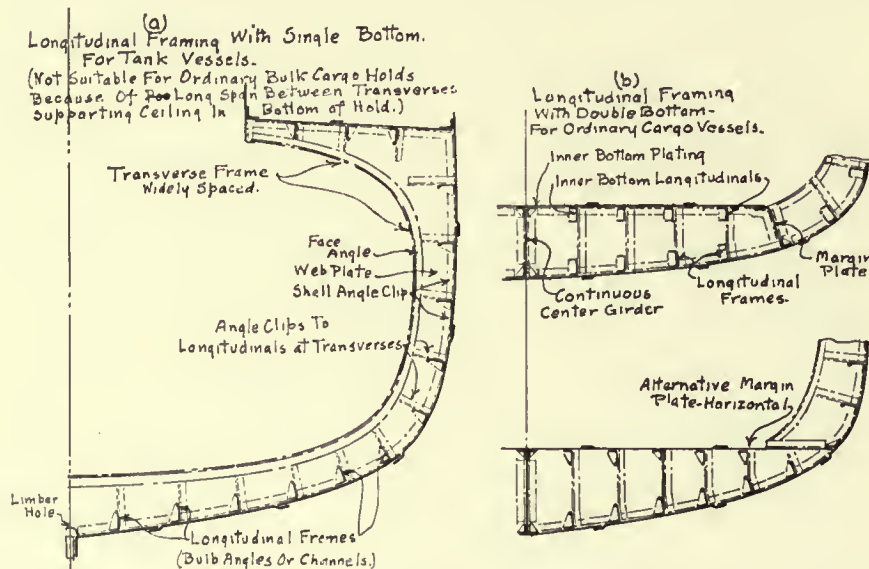 (a)
Longitudinal Framing With Single Bottom.
For Tank Vessels.
(Not Suitable For Ordinary Bulk Cargo Holds
Because Of Long Span Between Transverses
Supporting Ceiling In Bottom of Hold.)
Transverse Frame
Widely Spaced.
Face
Angle
Web Plate
Shell Angle Clip
Angle Clips To
Longitudinals at Transverses
Limber
Hole
Longitudinal Frames
(Bulb Angles Or Channels.)
(b)
Longitudinal Framing
With Double Bottom-
For Ordinary Cargo Vessels.
Inner Bottom Plating
Inner Bottom Longitudinals
Margin
Plate
Longitudinal
Frames.
Continuous
Center Girder
Alternative Margin
Plate-Horizontal